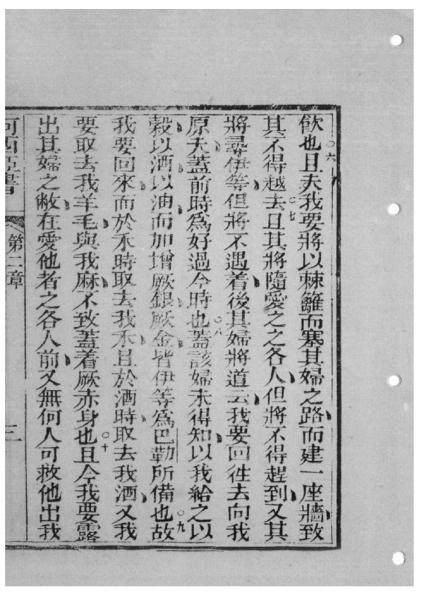 飲也○六且夫我要將以棘籬而塞其婦之路而建一座牆致
其不得越去○七且其將隨愛之之各人但將不得趕到又其
將尋伊等但將不遇着後其婦將道云我要回徃去向我
原夫蓋前時爲好過今時也○八蓋該婦未得知以我給之以
穀以酒以油而加增厥銀厥金皆伊等爲巴勒所備也○九故
我要回來而於禾時取去我禾且於酒時取去我酒又我
要取去我羊毛與我麻不致蓋着厥赤身也○十且今我要露
出其婦之敝在愛他者之各人前又無何人可救他出我
何西亞書 第二章 二